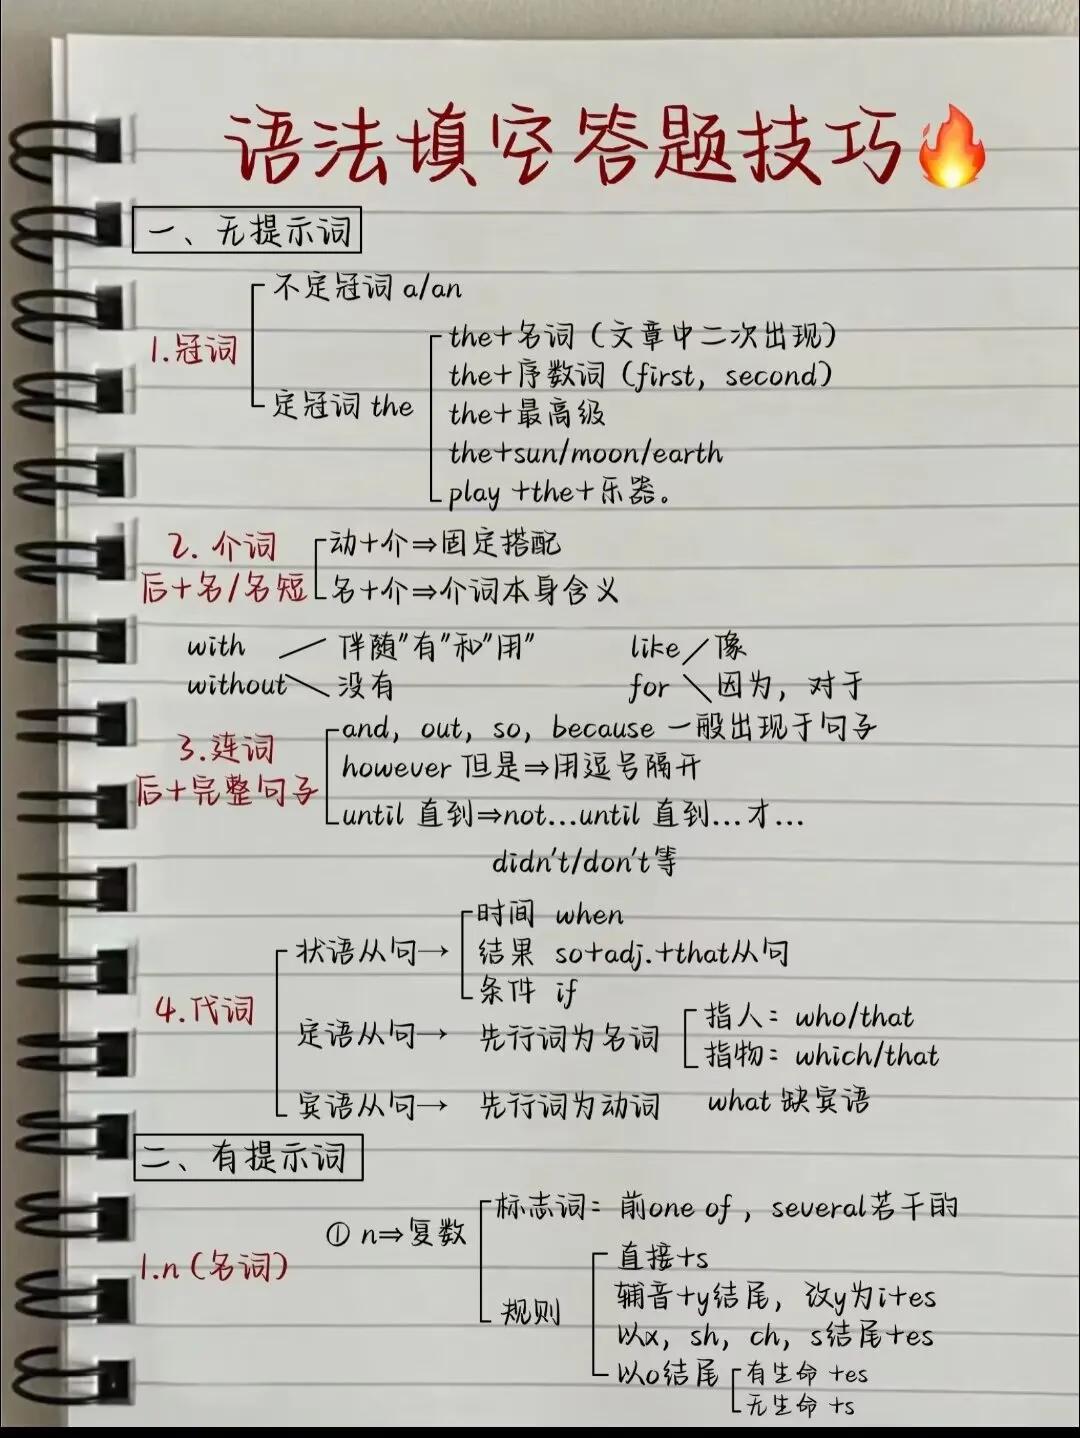 语法填空答题技巧🔥
一、无提示词
1.冠词
不定冠词 a/an
定冠词 the
the+名词（文章中二次出现）
the+序数词（first，second）
the+最高级
the+sun/moon/earth
play +the+乐器。
2.介词
后+名/名短
动+介⇒固定搭配
名+介⇒介词本身含义
with 伴随"有"和"用"
without 没有
like 像
for 因为，对于
3.连词
后+完整句子
and，out，so，because 一般出现于句子
however 但是⇒用逗号隔开
until 直到⇒not...until 直到...才...
didn't/don't等
4.代词
状语从句→
时间 when
结果 so+adj.+that从句
条件 if
定语从句→ 先行词为名词
指人：who/that
指物：which/that
宾语从句→ 先行词为动词 what 缺宾语
二、有提示词
1.n（名词）
① n⇒复数
标志词：前one of，several若干的
规则
直接+s
辅音+y结尾，改y为i+es
以x，sh，ch，s结尾+es
以o结尾
有生命 +es
无生命 +s